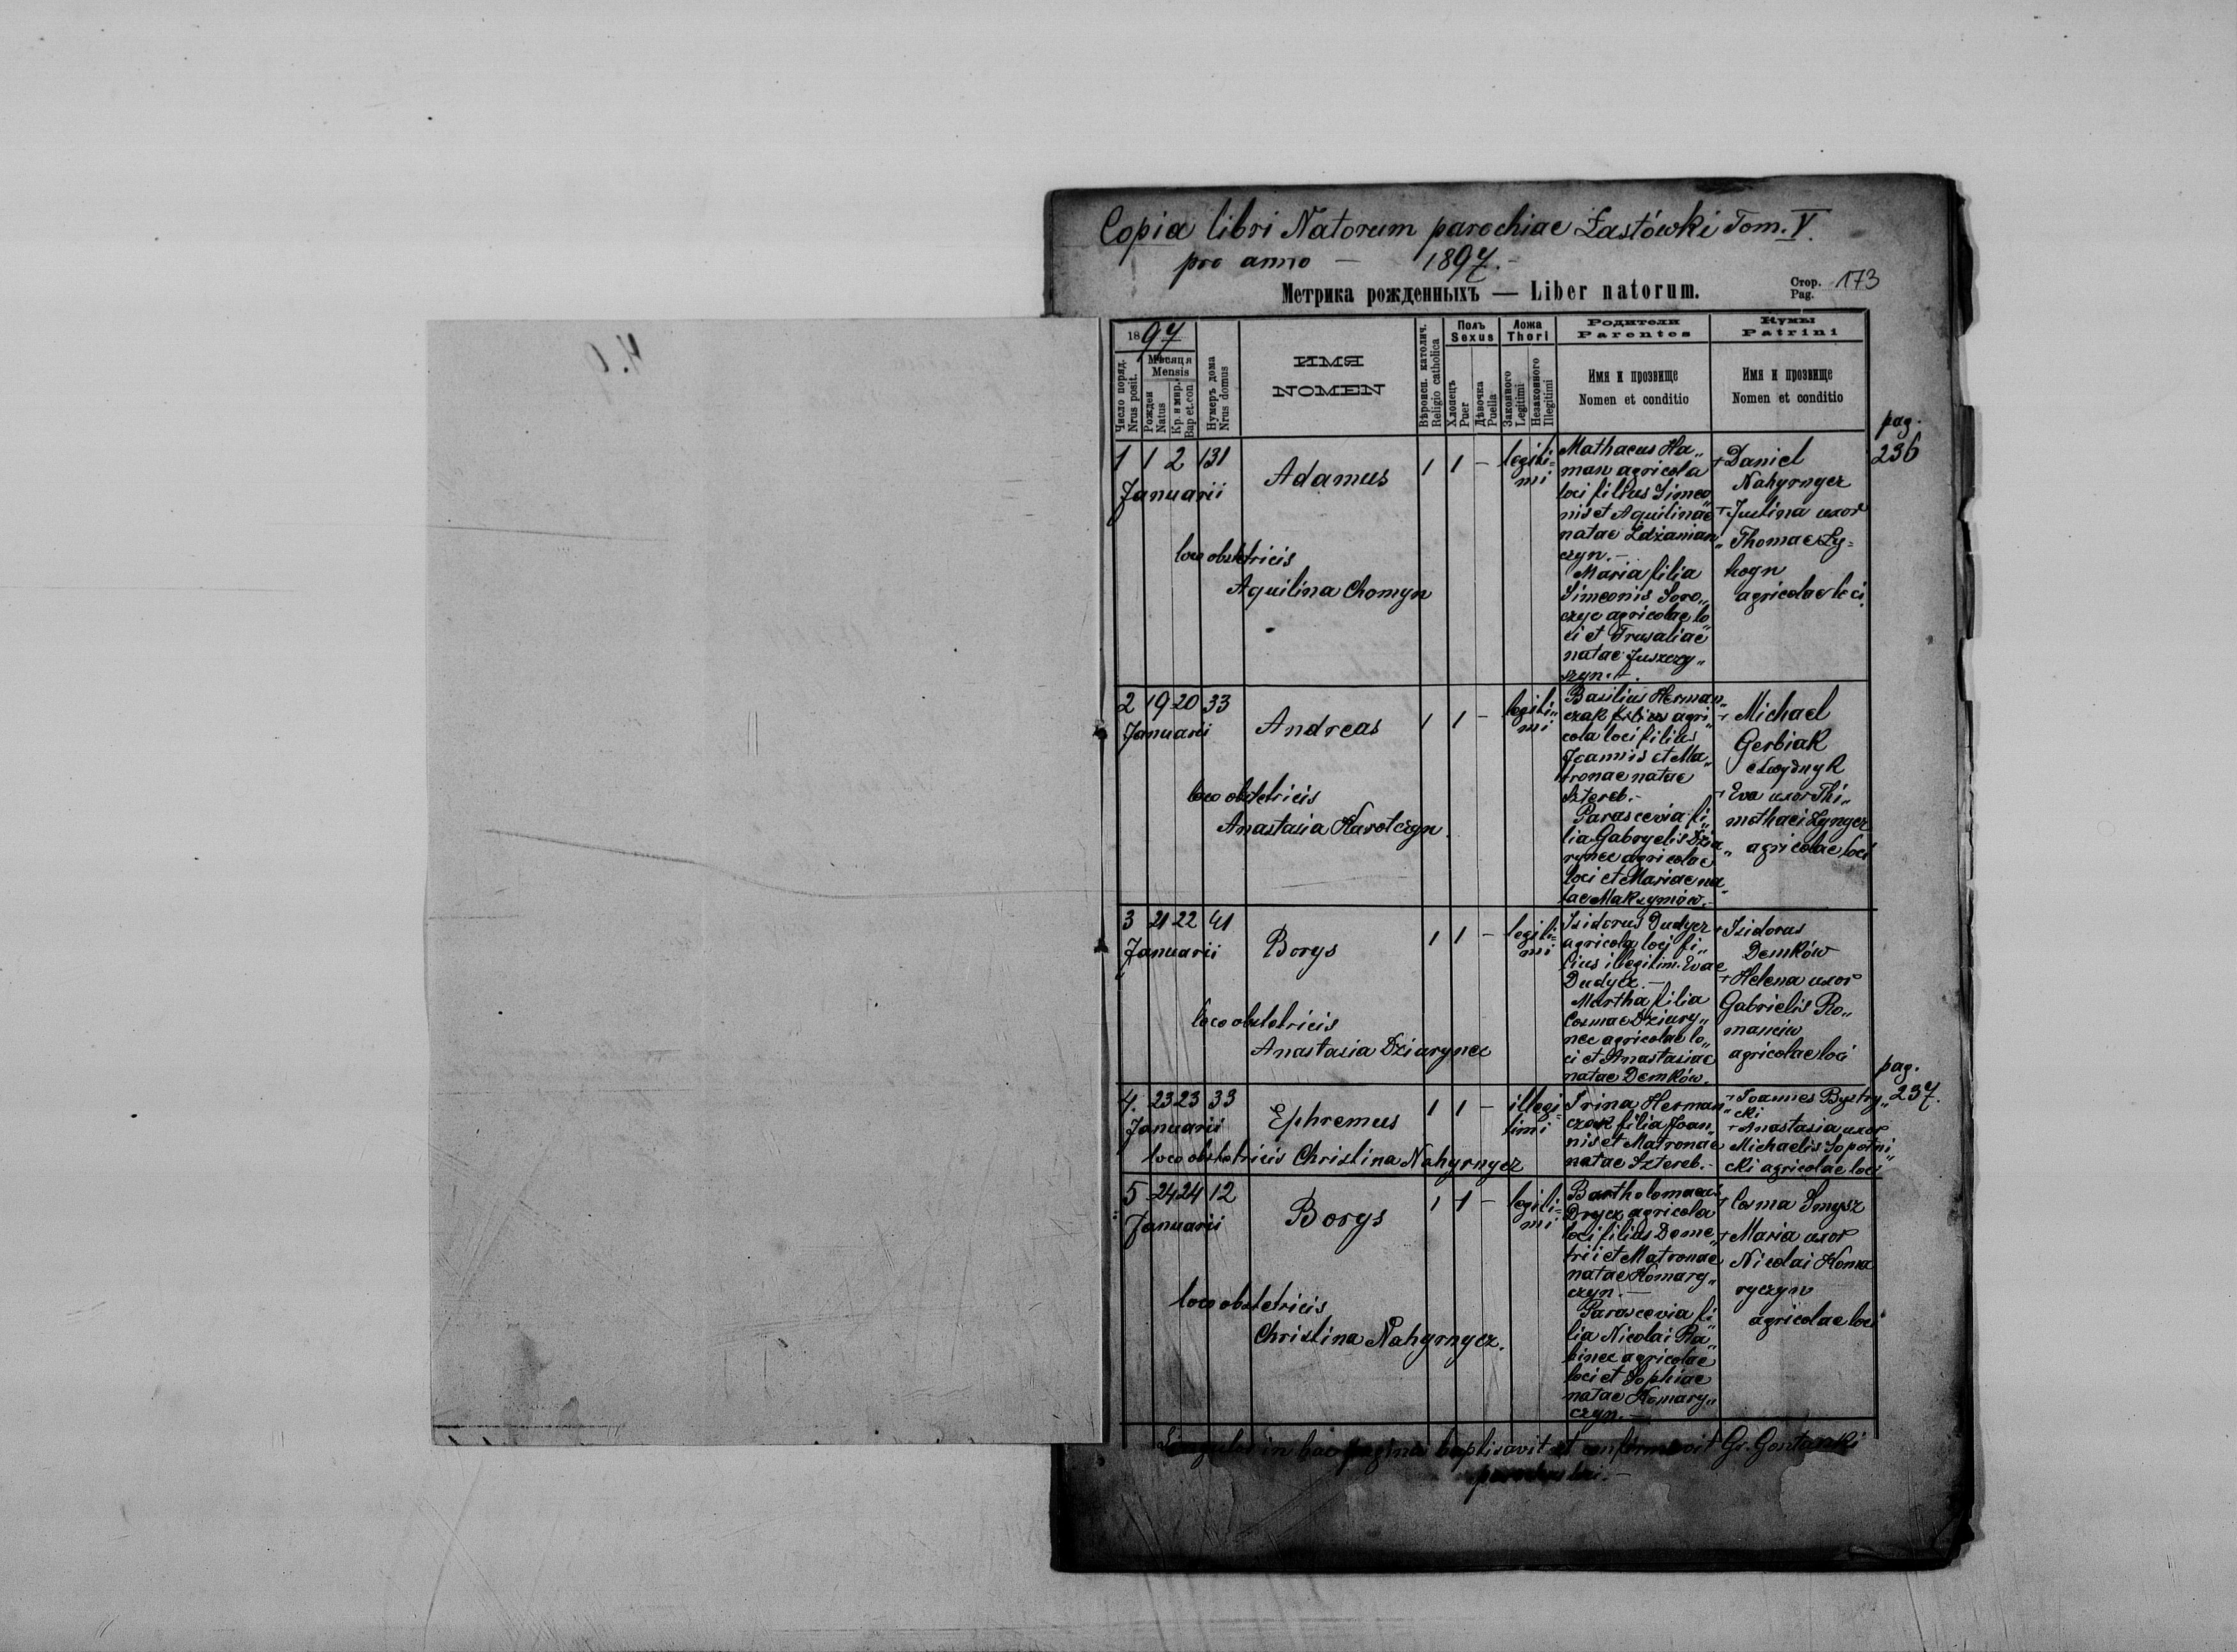 Copia libri Natorum parochiae Łastówki Tom. V.
pro anno — 1897. -
Метрика рожденныхъ — Liber natorum.
Стор.
Pag. 173
1897
Число поряд.
Nrus posit.
Мѣсяця
Mensis
Рожден
Natus
Кр. и мир.
Bap et.con
Нумеръ дома
Nrus domus
ИМЯ
NOMEN
Вѣроисп. католич.
Religio catholica
Полъ
Sexus
Хлопецъ
Puer
Дѣвочка
Puella
Ложа
Thori
Законного
Legitimi
Незаконного
Illegitimi
Родители
Parentes
Имя и прозвище
Nomen et conditio
Кумы
Patrini
Имя и прозвище
Nomen et conditio
pag.
236
1 1 2 131
Januarii
Adamus
1 1 -
legiti=
mi
loco obstetricis
Aquilina Chomyn
Mathaeus Ha„
man agricola
loci filius Simeo„
nis et Aquilinae
natae Zdzanian„
czyn. -
Maria filia
Simeonis Soro„
czyc agricolae lo„
ci et
natae Juszczy„
szyn. -
+ Daniel
Nahyrnycz
+ Justina uxor
Thomae Ły=
kogn
agricolae loci
2 19 20 33
Januarii
Andreas
1 1 -
legiti„
mi
loco obstetricis
Anastasia Karotczyn
Basilius Herman„
czak filius agri„
cola loci filius
Joannis et Ma„
tronae natae
Sztereb. -
Parascevia fi„
lia Gabryelis Dzia„
rynec agricolae
loci et Mariae na„
tae Maksymów. -
+ Michael
Gerbiak
+ Eva uxor Thi„
mothaei Łynycz
agricolae loci
3 21 22 41
Januarii
Borys
1 1 -
legiti=
mi
loco obstetricis
Anastasia Dziarynec
Isidorus Dudycz
agricola loci fi„
lius illegitim. Evae
Dudycz. -
Martha filia
Cosmae Dziary„
nec agricolae lo„
ci et Anastasiae
natae Demków.
+ Isidorus
Demków
+ Helena uxor
Gabrielis Ro„
manciw
agricolae loci
pag.
237.
4. 23 23 33
Januarii
Ephremus
1 1 -
illegi=
timi
loco obstetricis Christina Nahyrnycz
Irina Herman„
czak filia Joan„
nis et Matronae
natae Sztereb. -
+ Joannes Bystry„
cki
+ Anastasia uxor
Michaelis Sopotni„
cki agricolae loci
5 24 24 12
Januarii
Borys
1 1 -
legiti=
mi
loco obstetricis
Christina Nahyrnycz.
Bartholomaeus
Drycz agricola
loci filius Deme„
trii et Matronae
natae Komary„
czyn. -
Parascevia fi„
lia Nicolai Ra„
binec agricolae
loci et Sophiae
natae Komary„
czyn. -
+ Cosma Smysz
+ Maria uxor
Nicolai Koma
ryczyn
agricolae loci
Singulos in hac pagina baptisavit et confirmavit Gr. Gontarski
parochus loci. -